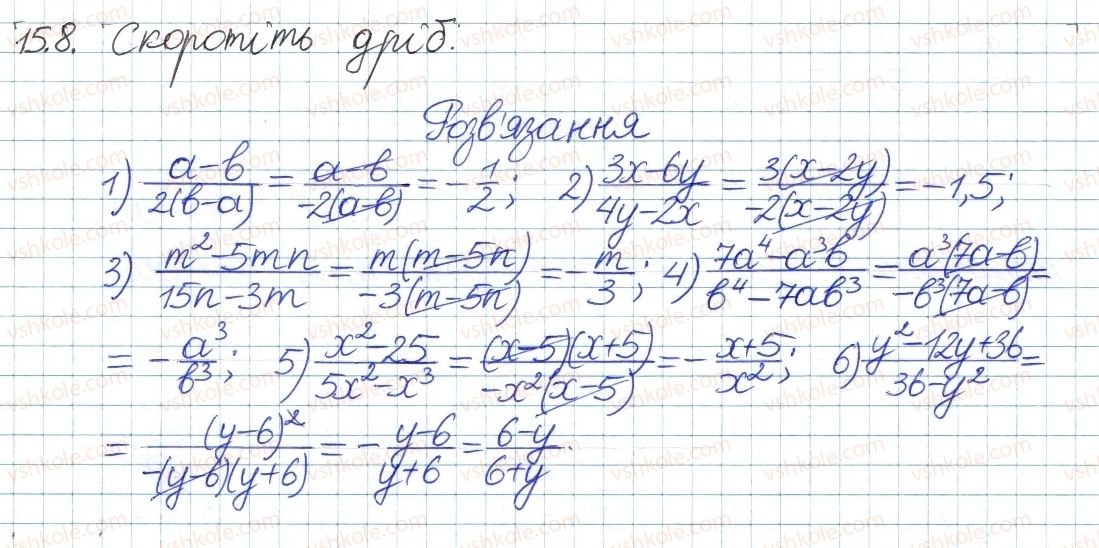 15.8. Скоротіть дріб.
Розв'язання
1) (a-b)/(2(b-a)) = (a-b)/(-2(a-b)) = -1/2; 2) (3x-6y)/(4y-2x) = (3(x-2y))/(-2(x-2y)) = -1,5;
3) (m²-5mn)/(15n-3m) = (m(m-5n))/(-3(m-5n)) = -m/3; 4) (7a⁴-a³b)/(b⁴-7ab³) = (a³(7a-b))/(-b³(7a-b)) =
= -a³/b³; 5) (x²-25)/(5x²-x³) = ((x-5)(x+5))/(-x²(x-5)) = -(x+5)/x²; 6) (y²-12y+36)/(36-y²) =
= (y-6)²/(-(y-6)(y+6)) = -(y-6)/(y+6) = (6-y)/(6+y).